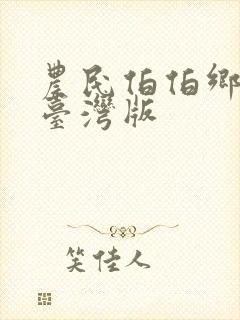 農民伯伯鄉
臺灣版
笑佳人